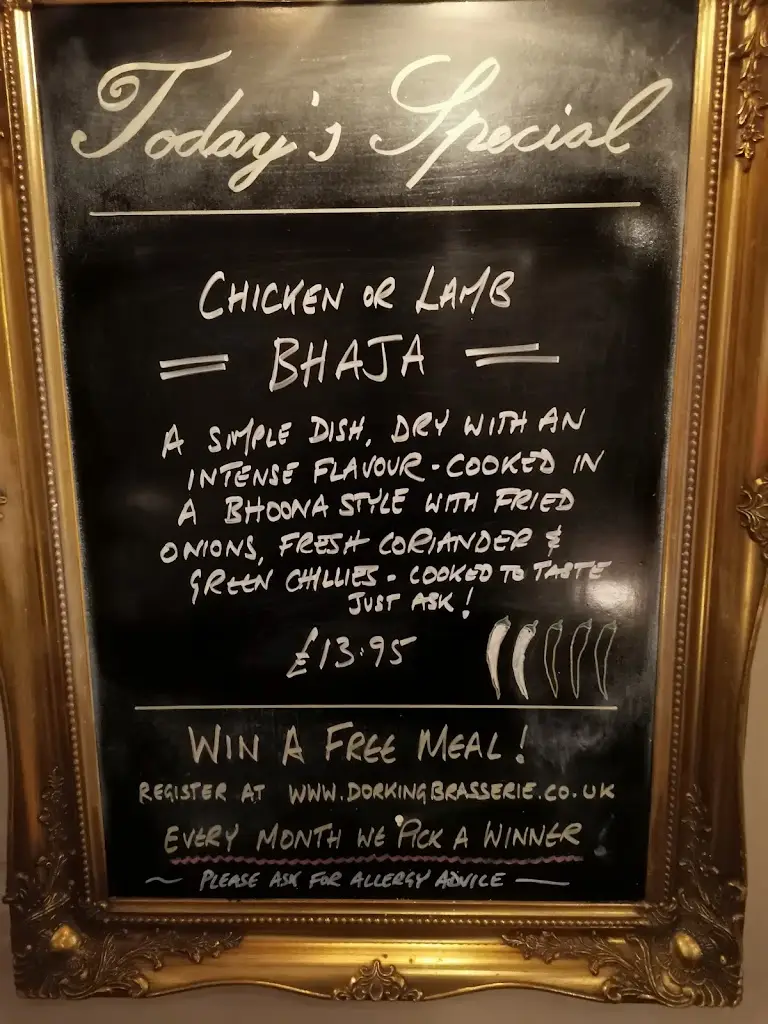 Today's Special
CHICKEN OR LAMB
BHAJA
A SIMPLE DISH, DRY WITH AN
INTENSE FLAVOUR - COOKED IN
A BHOONA STYLE WITH FRIED
ONIONS, FRESH CORIANDER &
GREEN CHILLIES - COOKED TO TASTE
JUST ASK!
£13.95
WIN A FREE MEAL!
REGISTER AT WWW.DORKINGBRASSERIE.CO.UK
EVERY MONTH WE PICK A WINNER!
~ PLEASE ASK FOR ALLERGY ADVICE —